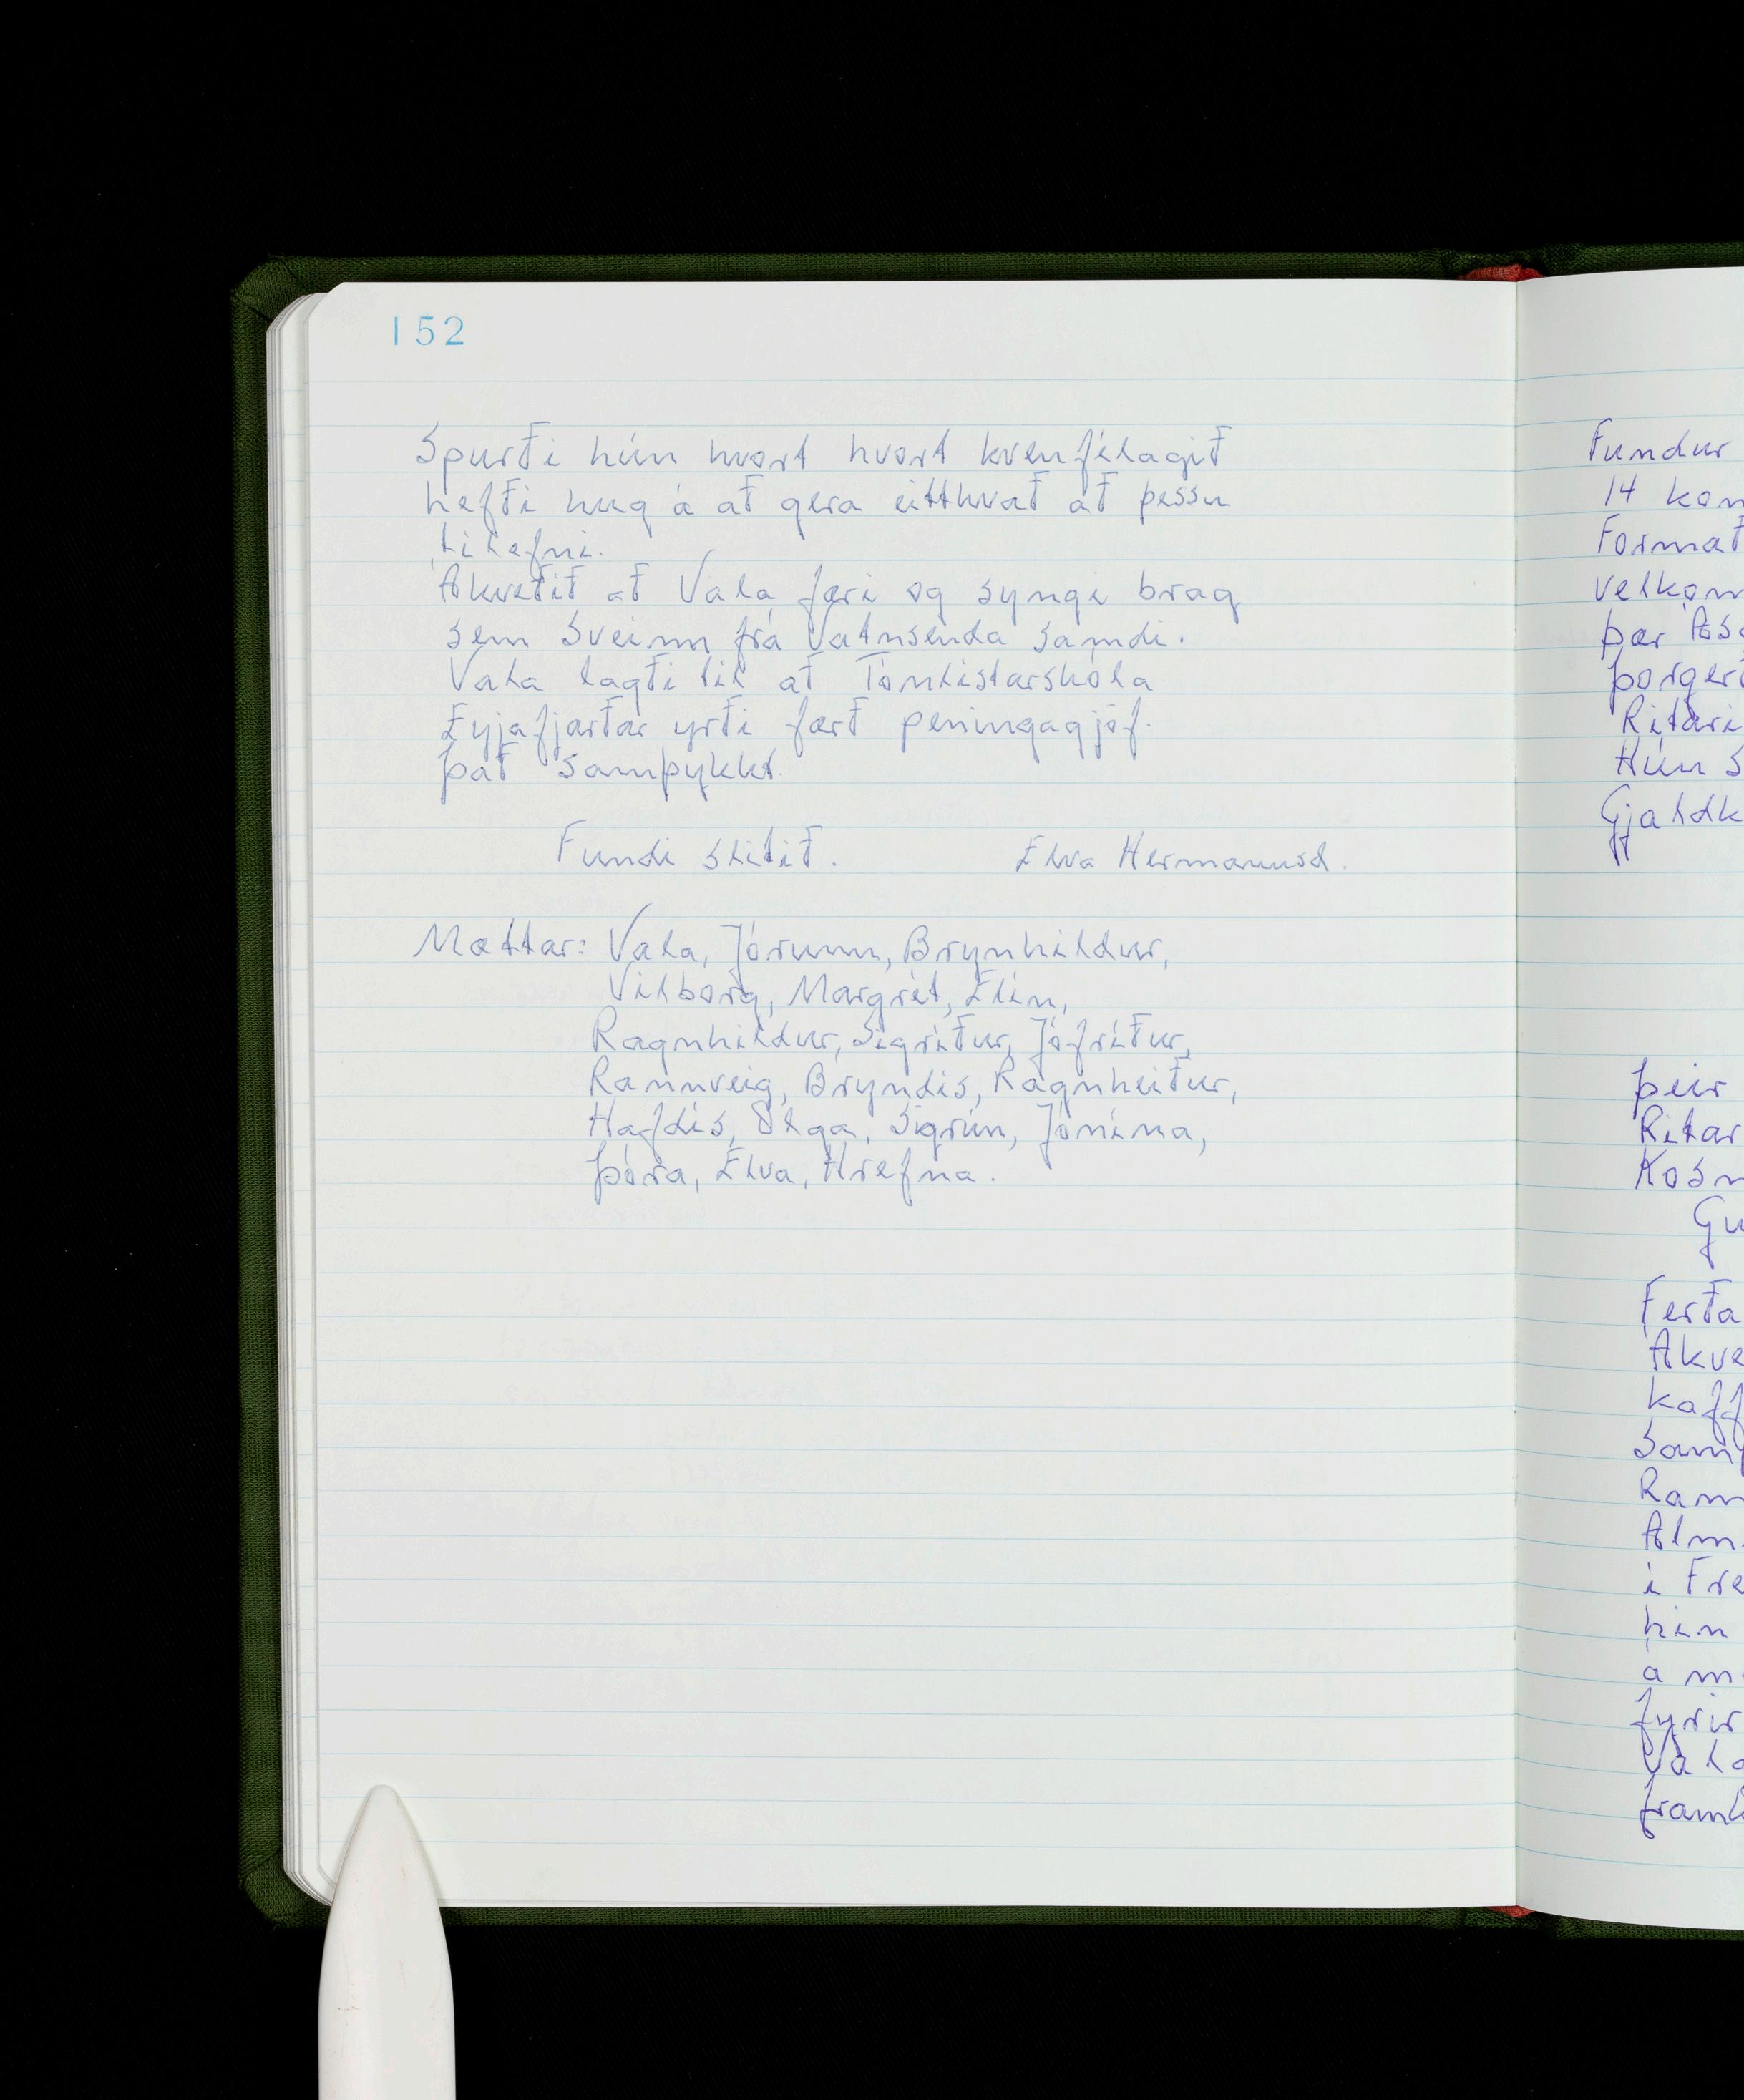 152
Spurði hún hvort hvort kvenfélagið
hefði hug á að gera eitthvað að þessu
tilefni.
Ákveðið að Vala færi og syngi brag
sem Sveinn frá Vatnsenda samdi.
Vala lagði til að Tónlistarskóla
Eyjafjarðar yrði færð peningagjöf.
Það samþykkt.
Fundi slitið. Elva Hermannsd.
Mættar: Vala, Jórunn, Brynhildur,
Vilborg, Margrét, Elín,
Ragnhildur, Sigríður, Jófríður,
Rannveig, Bryndís, Ragnheiður,
Hafdís, Olga, Sigrún, Jónína,
Þóra, Elva, Hrefna.
Fundur
14 kon
Formað
velkom
þær Ása
Þorgerð
Ritari
Hún s
Gjaldk
Þeir
Ritar
Kosn
Gu
Ferða
Ákve
kaff
Samþ
Rann
Alm
í Fre
hún
á m
fyrir
Vala
framh